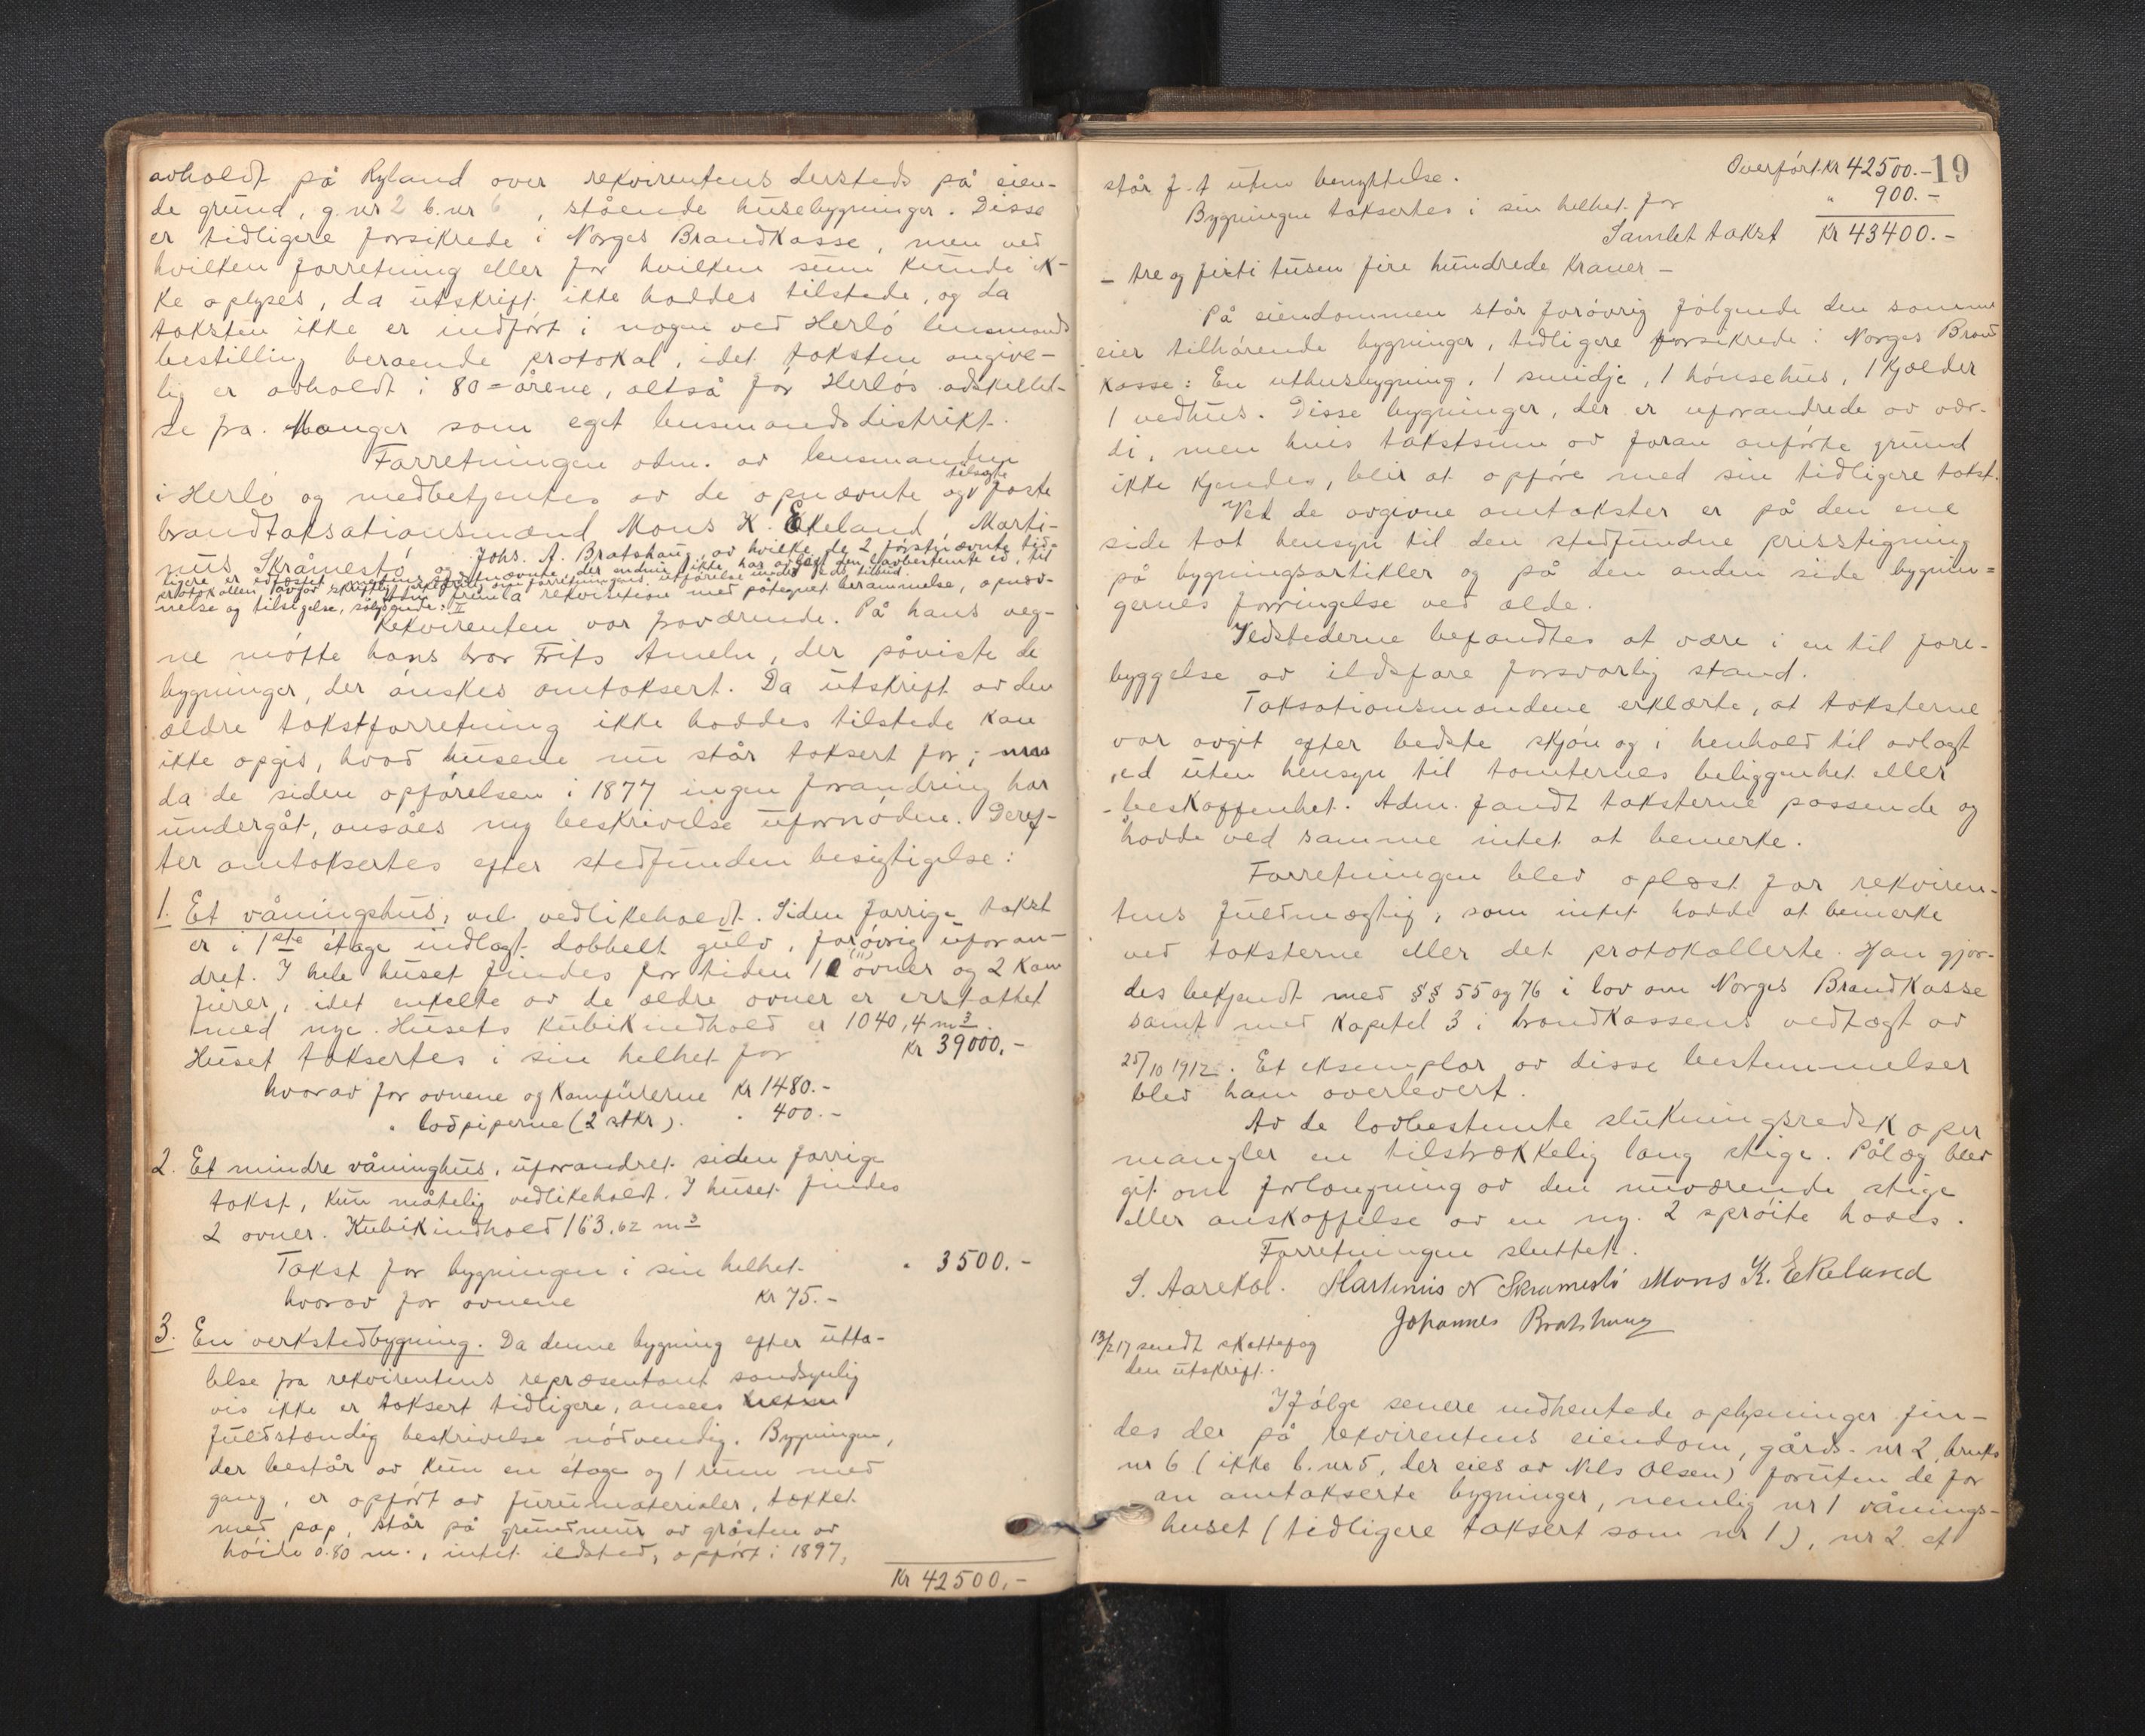 avholdt på Ryland over rekvirentens dersteds på eien-
de grund, g. nr 2 b. nr 6, stående husebygninger. Disse
er tidligere forsikrede i Norges Brandkasse, men ved
hvilken forretning eller for hvilken sum kunde ik-
ke oplyses, da utskrift ikke haddes tilstede, og da
taksten ikke er indført i nogen ved Herlø lensmands
bestilling beroende protokol, idet taksten angive-
lig er avholdt i 80-årene, altså før Herløs adskillel-
se fra Manger som eget lensmandsdistrikt.
Forretningen adm. av lensmanden
i Herlø og medbetjentes av de opnævnte og tilsagte faste
brandtaksationsmænd Mons K. Ekeland, Marti-
nus Skråmestø og Johs. A. Bratshaug, av hvilke de 2 førstnævnte tid-
ligere er edfæstet, sidstnævnte, der endnu ikke har avlagt den lovbestemte ed, til
protokollen avgav skriftlig
fremla rekvisition med påtegnet berammelse, opnæv-
nelse og tilsigelse, sålydende: I
Rekvirenten var fraværende. På hans veg-
ne møtte hans bror Frits Ameln, der påviste de
bygninger, der ønskes omtaksert. Da utskrift av den
ældre takstforretning ikke haddes tilstede kan
ikke opgis, hvad husene nu står taksert for; men
da de siden opførelsen i 1877 ingen forandring har
undergåt, ansåes ny beskrivelse ufornøden. Deref-
ter omtaksertes efter stedfunden besigtigelse:
1. Et våningshus, vel vedlikeholdt. Siden forrige takst
er i 1ste etage indlagt dobbelt gulv, forøvrig uforan-
dret. I hele huset findes for tiden 11 (11) ovner og 2 kom
furer, idet enkelte av de ældre ovner er erstattet
med nye. Husets kubikindhold er 1040,4 m3.
Huset taksertes i sin helhet for Kr 39000.-
hvorav for ovnene og komfurerne Kr 1480.-
" lodpiperne (2 stkr). " 400.-
2. Et mindre våninghus, uforandret siden forrige
takst, kun måtelig vedlikeholdt. I huset findes
2 ovner. Kubikindhold 163,62 m3
Takst for bygningen i sin helhet. " 3500.-
hvorav for ovnene Kr 75.-
3. En verkstedbygning. Da denne bygning efter utta-
lelse fra rekvirentens repræsentant sandsynlig
vis ikke er taksert tidligere, ansees
fuldstændig beskrivelse nødvendig. Bygningen,
der består av kun en etage og 1 rum med
gang, er opført av furumaterialer, tækket
med pap, står på grundmur av gråsten av
høide 0.80 m., intet ildsted, opført i 1897,
Kr 42500.-
19
Overført Kr 42500.-
står f. t. uten benyttelse.
Bygningen taksertes i sin helhet for " 900.-
Samlet takst Kr 43400.-
- tre og firti tusen fire hundrede kroner -
På eiendommen står forøvrig følgende den samme
eier tilhørende bygninger, tidligere forsikrede i Norges Brand
kasse: En uthusbygning, 1 smidje, 1 hønsehus, 1 kjælder
1 vedhus. Disse bygninger, der er uforandrede av vær-
di, men hvis takstsum av foran anførte grund
ikke kjendes, blir at opføre med sin tidligere takst.
Ved de avgivne omtakster er på den ene
side tat hensyn til den stedfundne prisstigning
på bygningsartikler og på den anden side bygnin-
gernes forringelse ved ælde.
Ildstederne befandtes at være i en til fore-
byggelse av ildsfare forsvarlig stand.
Taksationsmændene erklærte, at taksterne
var avgit efter bedste skjøn og i henhold til avlagt
ed uten hensyn til tomternes beliggenhet eller
beskaffenhet. Adm. fandt taksterne passende og
hadde ved samme intet at bemerke.
Forretningen blev oplæst for rekviren-
tens fuldmægtig, som intet hadde at bemerke
ved taksterne eller det protokollerte. Han gjor-
des bekjendt med §§ 55 og 76 i lov om Norges Brandkasse
samt med kapitel 3 i brandkassens vedtægt av
25/10 1912. Et eksemplar av disse bestemmelser
blev ham overlevert.
Av de lovbestemte slukningsredskaper
mangler en tilstrækkelig lang stige. Pålæg blev
git om forlængning av den nuværende stige
eller anskaffelse av en ny. 2 sprøite haves.
Forretningen sluttet.
S. Aarekol. Martinius N Skramestø Mons K. Ekeland
Johannes Bratshaug
13/2 17 sendt skattefog
den utskrift.
Ifølge senere indhentede oplysninger fin-
des der på rekvirentens eiendom, gårds-nr 2, bruks
nr 6 (ikke b. nr 5, der eies av Nils Olsen) foruten de for
an omtakserte bygninger, nemlig nr 1 vånings-
huset (tidligere taksert som nr 1), nr 2 et